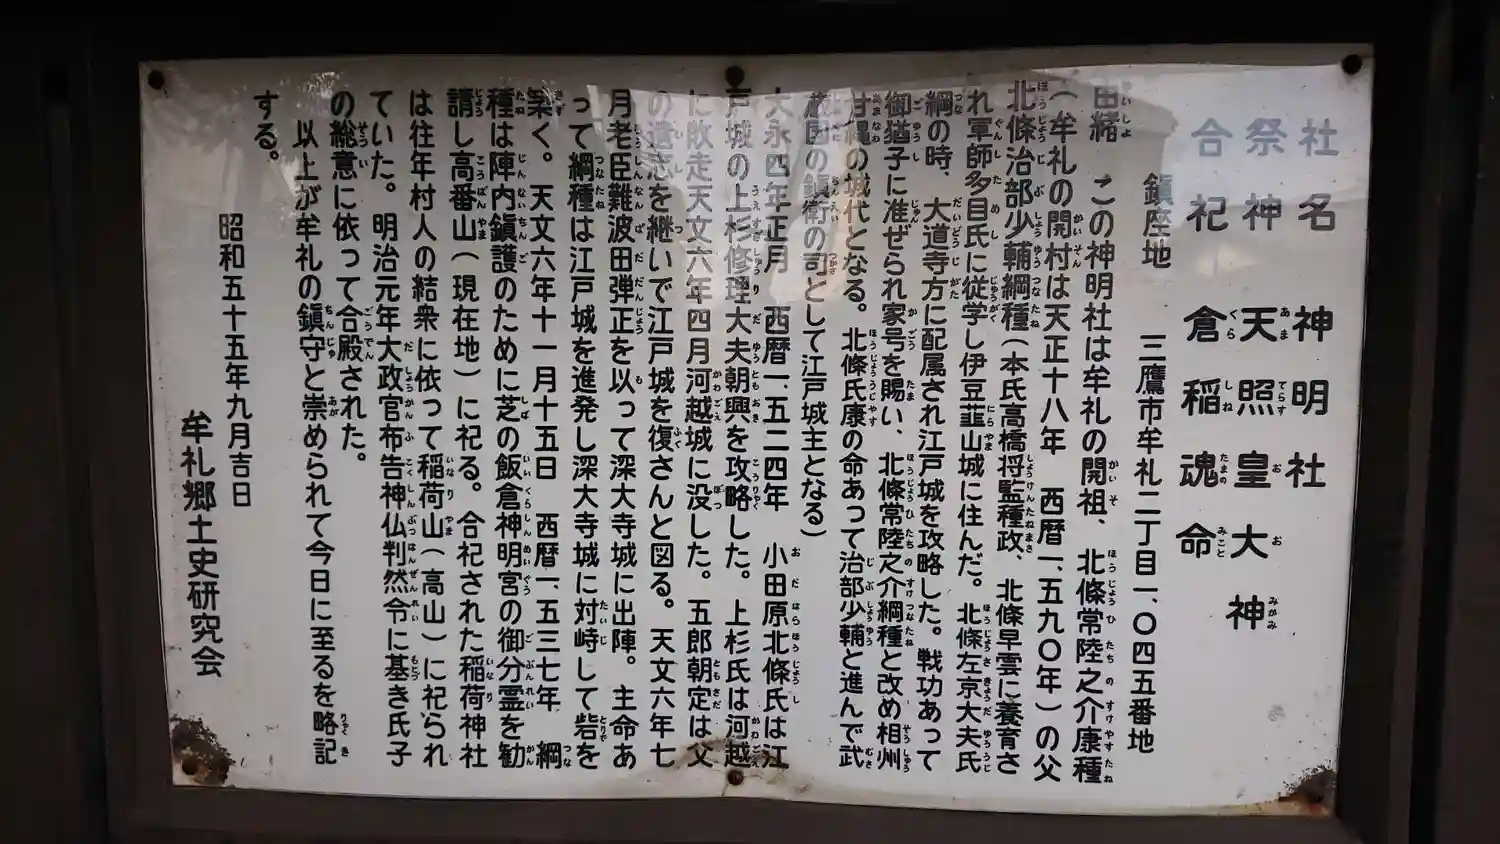 社名　神明社
祭神　天照皇大神
合祀　倉稲魂命
鎮座地　三鷹市牟礼二丁目一、〇四五番地
由緒　この神明社は牟礼の開祖、北條常陸之介康種
（牟礼の開村は天正十八年　西暦一、五九〇年）の父
北條治部少輔綱種（本氏高橋将監種政、北條早雲に養育さ
れ軍師多目氏に従学し伊豆韮山城に住んだ。北條左京大夫氏
綱の時、大道寺方に配属され江戸城を攻略した。戦功あって
御猶子に准ぜられ家号を賜い、北條常陸之介綱種と改め相州
甘縄の城代となる。北條氏康の命あって治部少輔と進んで武
蔵国の鎮衛の司として江戸城主となる）
大永四年正月　西暦一、五二四年　小田原北條氏は江
戸城の上杉修理大夫朝興を攻略した。上杉氏は河越
に敗走天文六年四月河越城に没した。五郎朝定は父
の遺志を継いで江戸城を復さんと図る。天文六年七
月老臣難波田弾正を以って深大寺城に出陣。主命あ
って綱種は江戸城を進発し深大寺城に対峙して砦を
築く。天文六年十一月十五日　西暦一、五三七年　綱
種は陣内鎮護のために芝の飯倉神明宮の御分霊を勧
請し高番山（現在地）に祀る。合祀された稲荷神社
は往年村人の結衆に依って稲荷山（高山）に祀られ
ていた。明治元年大政官布告神仏判然令に基き氏子
の総意に依って合殿された。
以上が牟礼の鎮守と崇められて今日に至るを略記
する。
昭和五十五年九月吉日
牟礼郷土史研究会